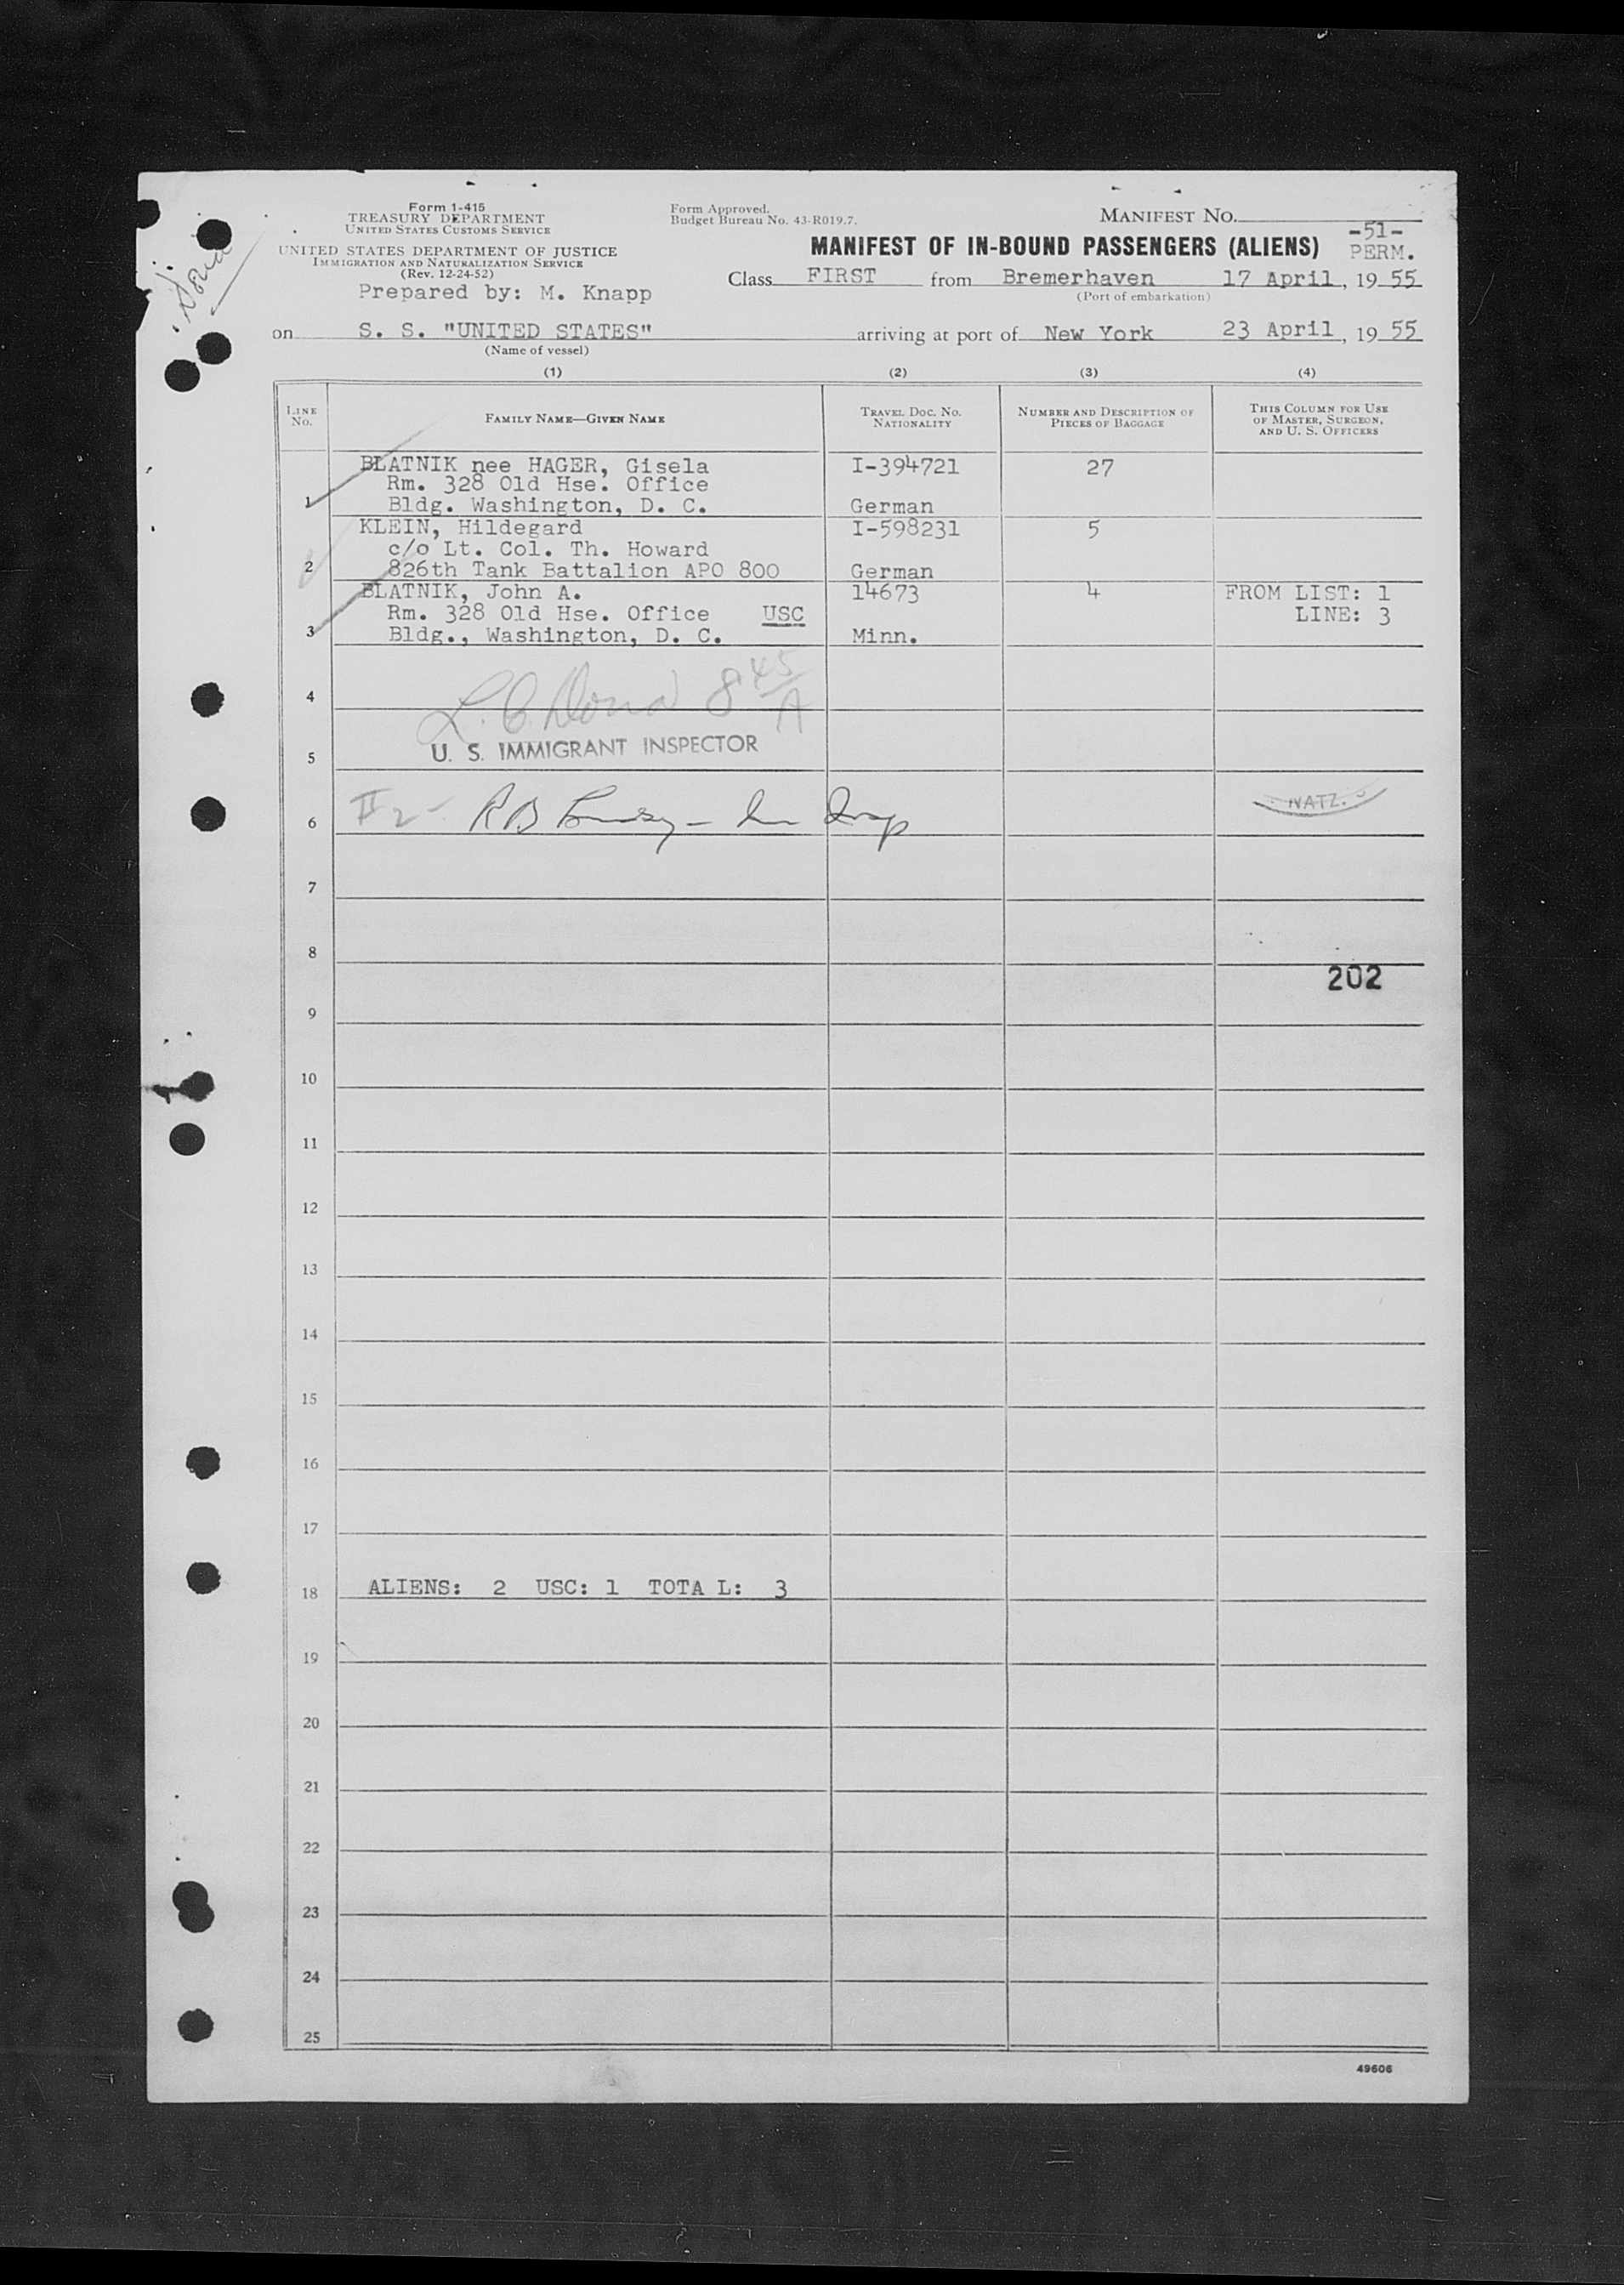 Form 1-415
TREASURY DEPARTMENT
UNITED STATES CUSTOMS SERVICE
UNITED STATES DEPARTMENT OF JUSTICE
IMMIGRATION AND NATURALIZATION SERVICE
(Rev. 12-24-52)
Prepared by: M. Knapp
Form Approved.
Budget Bureau No. 43-R019.7.
MANIFEST NO.
-51-
MANIFEST OF IN-BOUND PASSENGERS (ALIENS) PERM.
Class FIRST from Bremerhaven 17 April, 19 55
(Port of embarkation)
on S. S. "UNITED STATES" arriving at port of New York 23 April, 19 55
(Name of vessel)
(1) (2) (3) (4)
LINE NO.
FAMILY NAME—GIVEN NAME
TRAVEL DOC. NO.
NATIONALITY
NUMBER AND DESCRIPTION OF
PIECES OF BAGGAGE
THIS COLUMN FOR USE
OF MASTER, SURGEON,
AND U. S. OFFICERS
BLATNIK nee HAGER, Gisela I-394721 27
Rm. 328 Old Hse. Office
1 Bldg. Washington, D. C. German
KLEIN, Hildegard I-598231 5
c/o Lt. Col. Th. Howard
2 826th Tank Battalion APO 800 German
BLATNIK, John A. 14673 4 FROM LIST: 1
Rm. 328 Old Hse. Office USC LINE: 3
3 Bldg., Washington, D. C. Minn.
4 8 45/A
5 U. S. IMMIGRANT INSPECTOR
6 NATZ.
7
8
202
9
10
11
12
13
14
15
16
17
18 ALIENS: 2 USC: 1 TOTA L: 3
19
20
21
22
23
24
25
49606